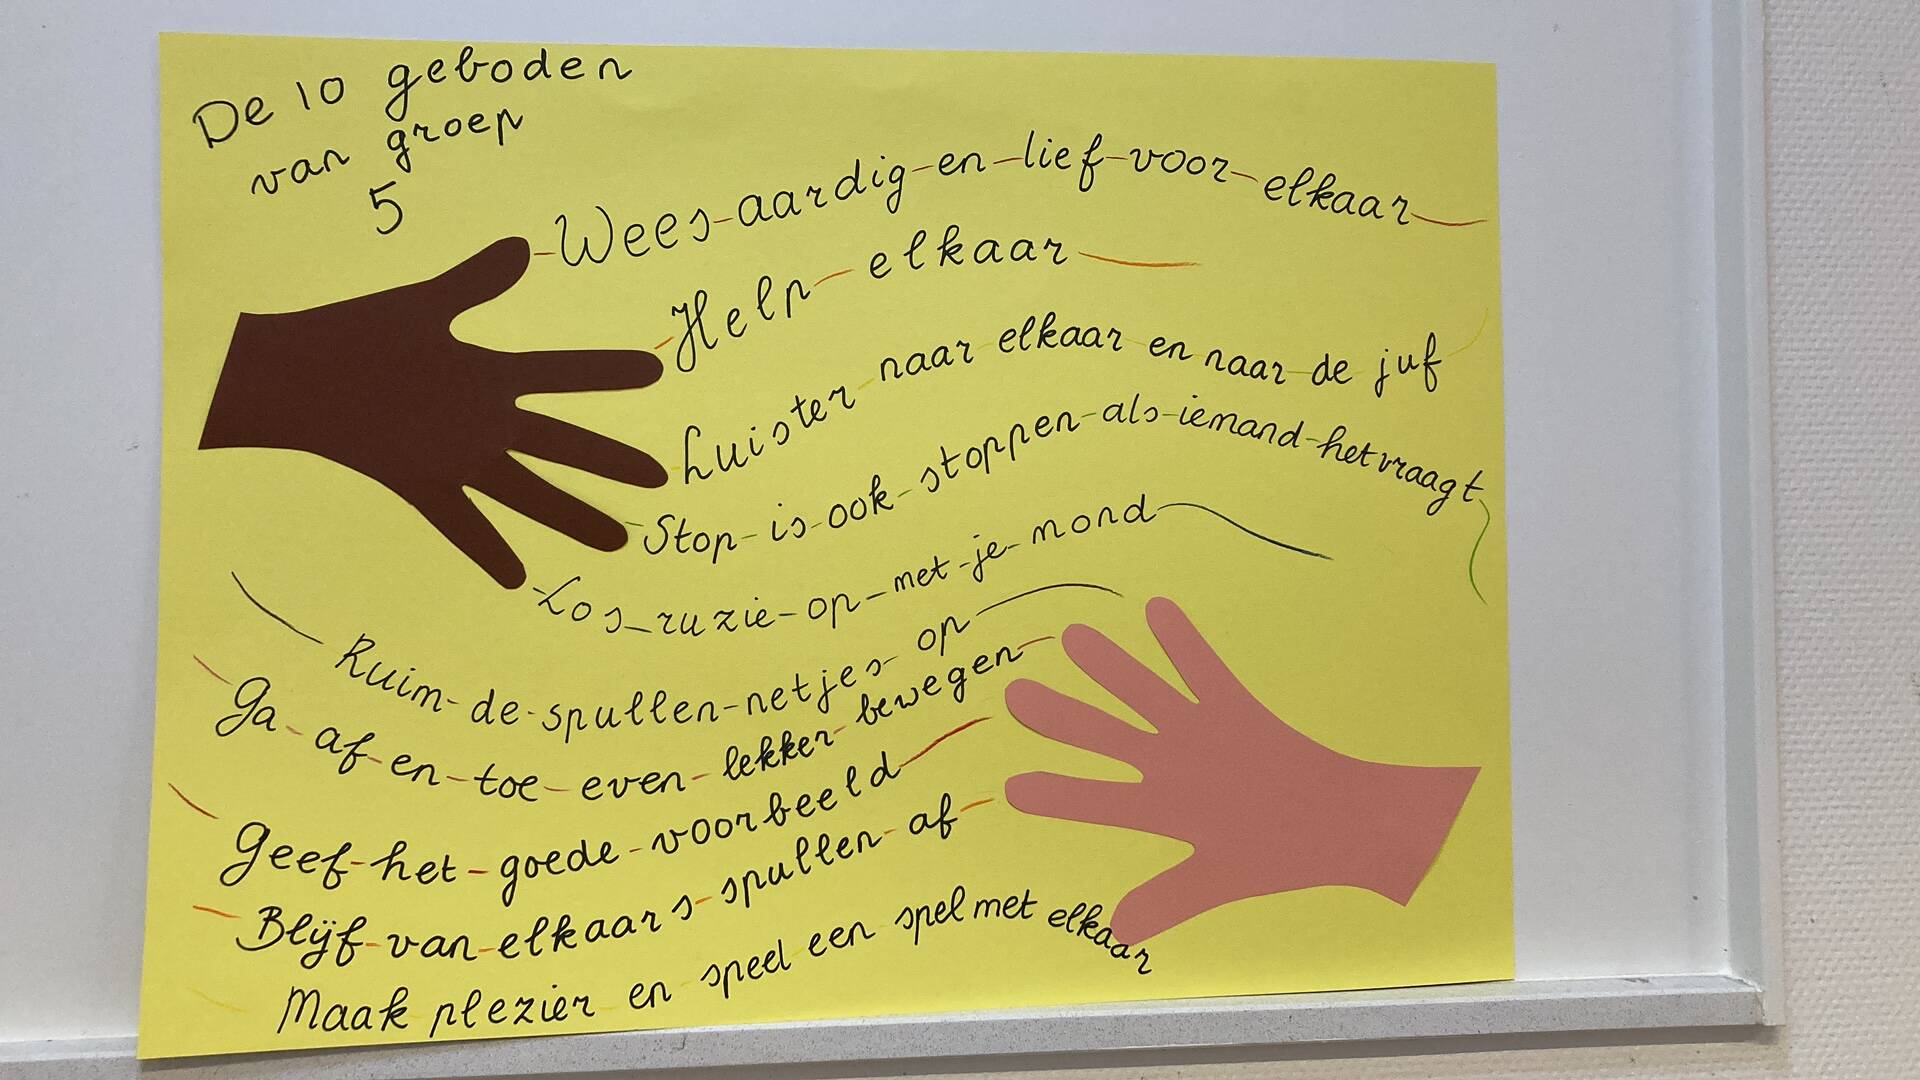 De 10 geboden
van groep
5
Wees aardig en lief voor elkaar
Help elkaar
Luister naar elkaar en naar de juf
Stop is ook stoppen als iemand het vraagt
Los ruzie op met je mond
Ruim de spullen netjes op
Ga af en toe even lekker bewegen
Geef het goede voorbeeld
Blijf van elkaars spullen af
Maak plezier en speel een spel met elkaar